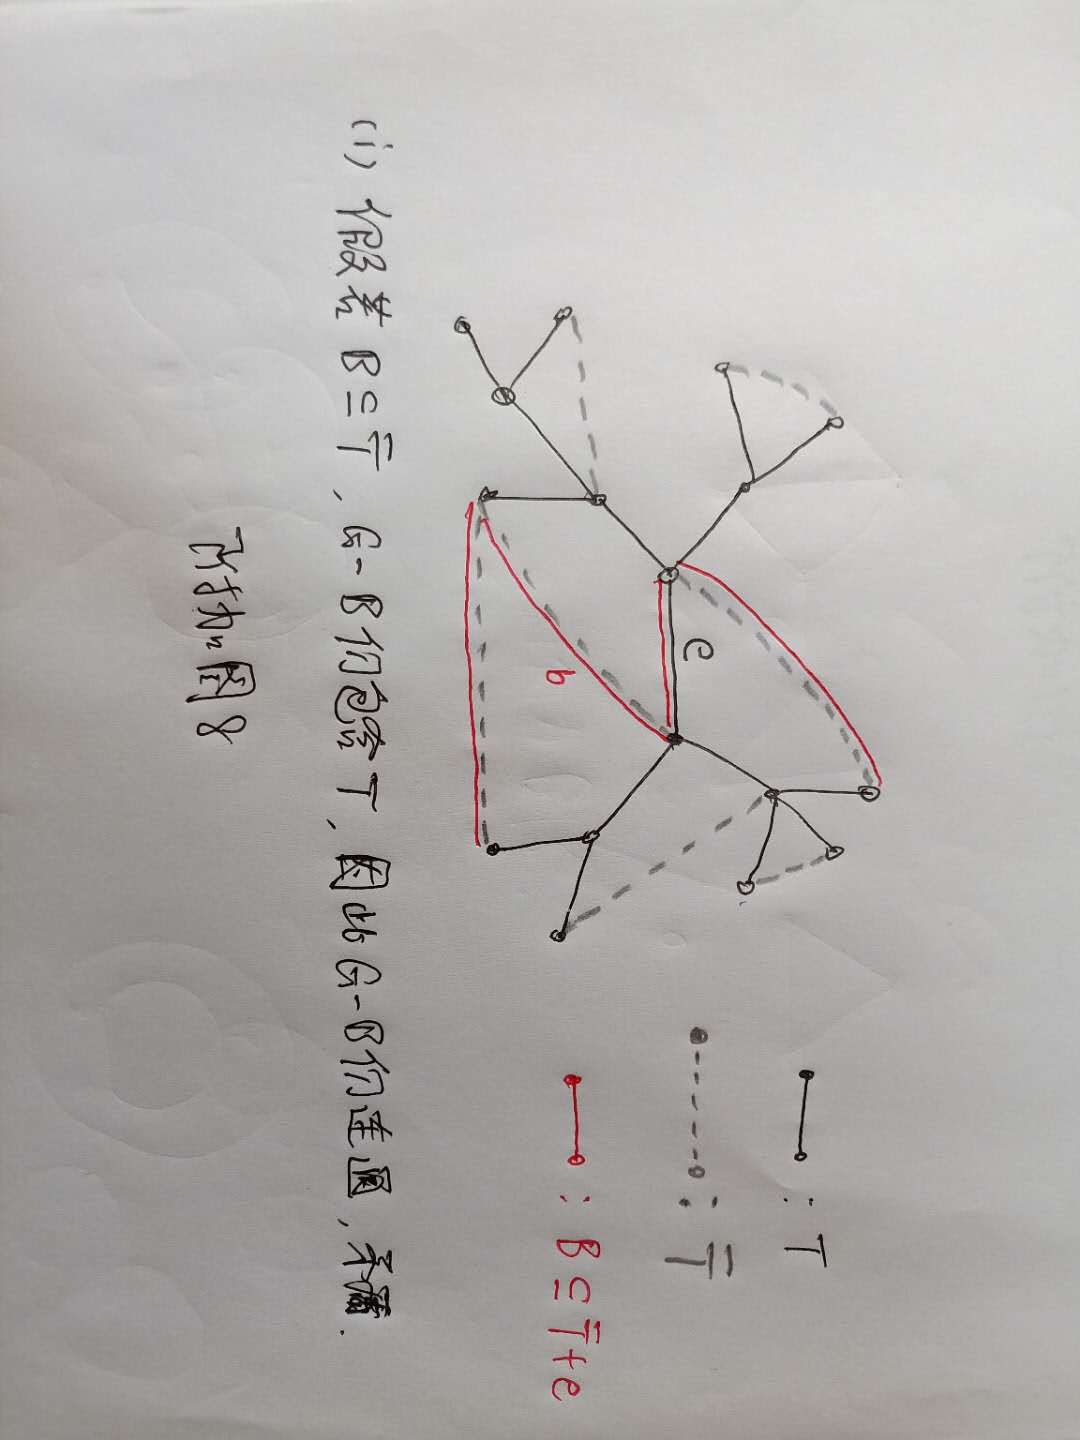 e
b
: T
: T̄
: B ⊆ T̄+e
(i) 假若 B ⊆ T̄, G-B仍包含T, 因此G-B仍连通, 矛盾.
附加图8